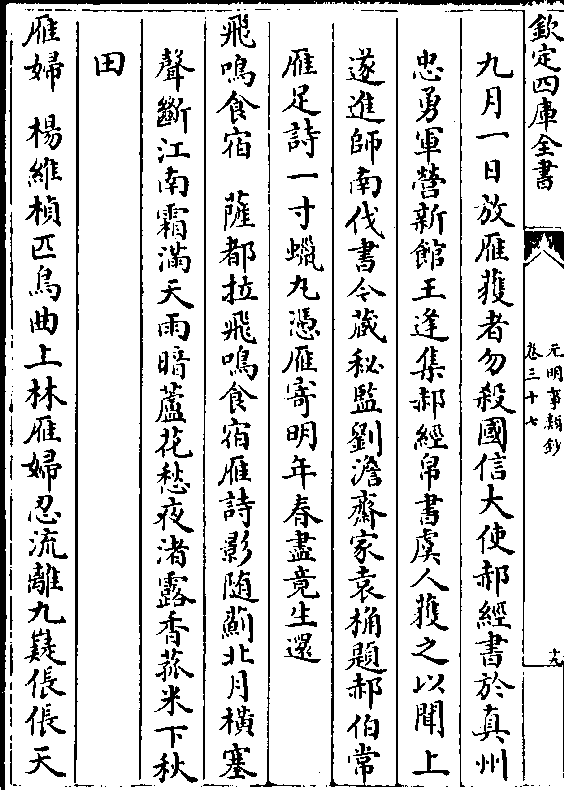 欽定四庫全書
元明事類鈔
卷三十七
十九
九月一日放雁獲者勿殺國信大使郝經書於真州
忠勇軍營新館王逢集郝經帛書虞人獲之以聞上
遂進師南伐書今藏秘監劉澹齋家袁桷題郝伯常
雁足詩一寸蠟丸憑雁寄明年春盡竟生還
飛鳴食宿　薩都拉飛鳴食宿雁詩影随薊北月橫塞
聲斷江南霜滿天雨暗蘆花愁夜渚露香菰米下秋
田
雁婦　楊維楨匹鳥曲上林雁婦忍流離九嶷倀倀天